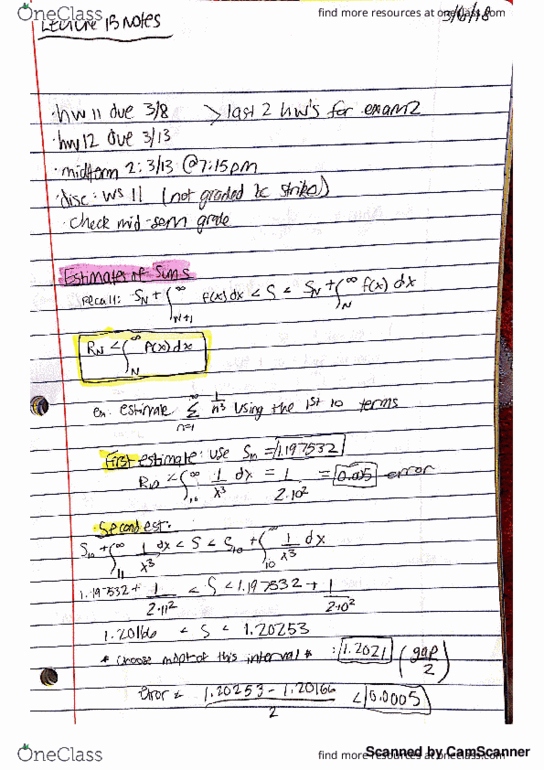 OneClass
find more resources at oneclass.com
Lecture 13 Notes
3/6/18
· hw 11 due 3/8 > last 2 hw's for exam 2
· hw 12 due 3/13
· midterm 2: 3/13 @7:15pm
· disc: ws 11 (not graded bc strike)
· check mid-sem grade
Estimates of Sums
recall: S_N + ∫_{N+1}^∞ f(x) dx < S < S_N + ∫_N^∞ f(x) dx
R_N < ∫_N^∞ f(x) dx
ex. estimate ∑_{n=1}^∞ 1/n³ using the 1st 10 terms
First estimate: use S_10 = 1.197532
R_10 < ∫_10^∞ 1/x³ dx = 1/2·10² = 0.005 error
Second est.
S_10 + ∫_11^∞ 1/x³ dx < S < S_10 + ∫_10^∞ 1/x³ dx
1.197532 + 1/2·11² < S < 1.197532 + 1/2·10²
1.20166 < S < 1.20253
* choose mdpt of this interval * : 1.2021 (gap/2)
error < 1.20253 - 1.20166 / 2 < 0.0005
OneClass
find more resources at oneclass.com
Scanned by CamScanner